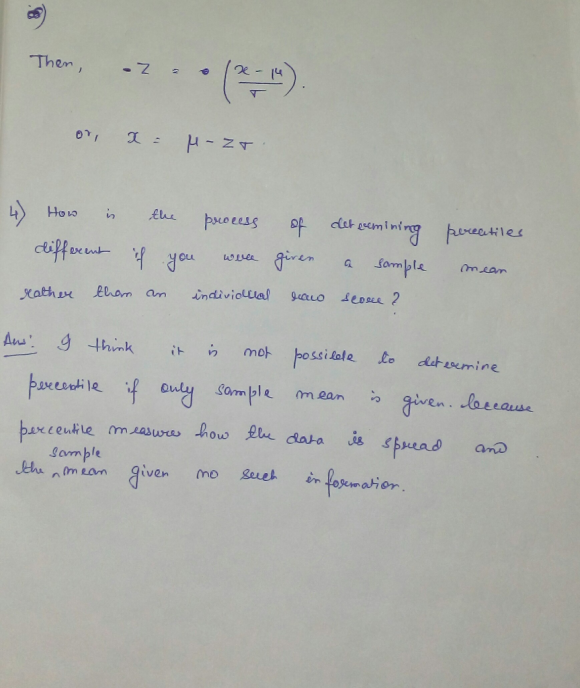 Then, - Z = (x - μ / σ).
or, x = μ - Zσ.
4) How is the process of determining percentiles
different if you were given a sample mean
rather than an individual raw score?
Ans: I think it is not possible to determine
percentile if only sample mean is given. because
percentile measures how the data is spread and
the sample mean given no such information.